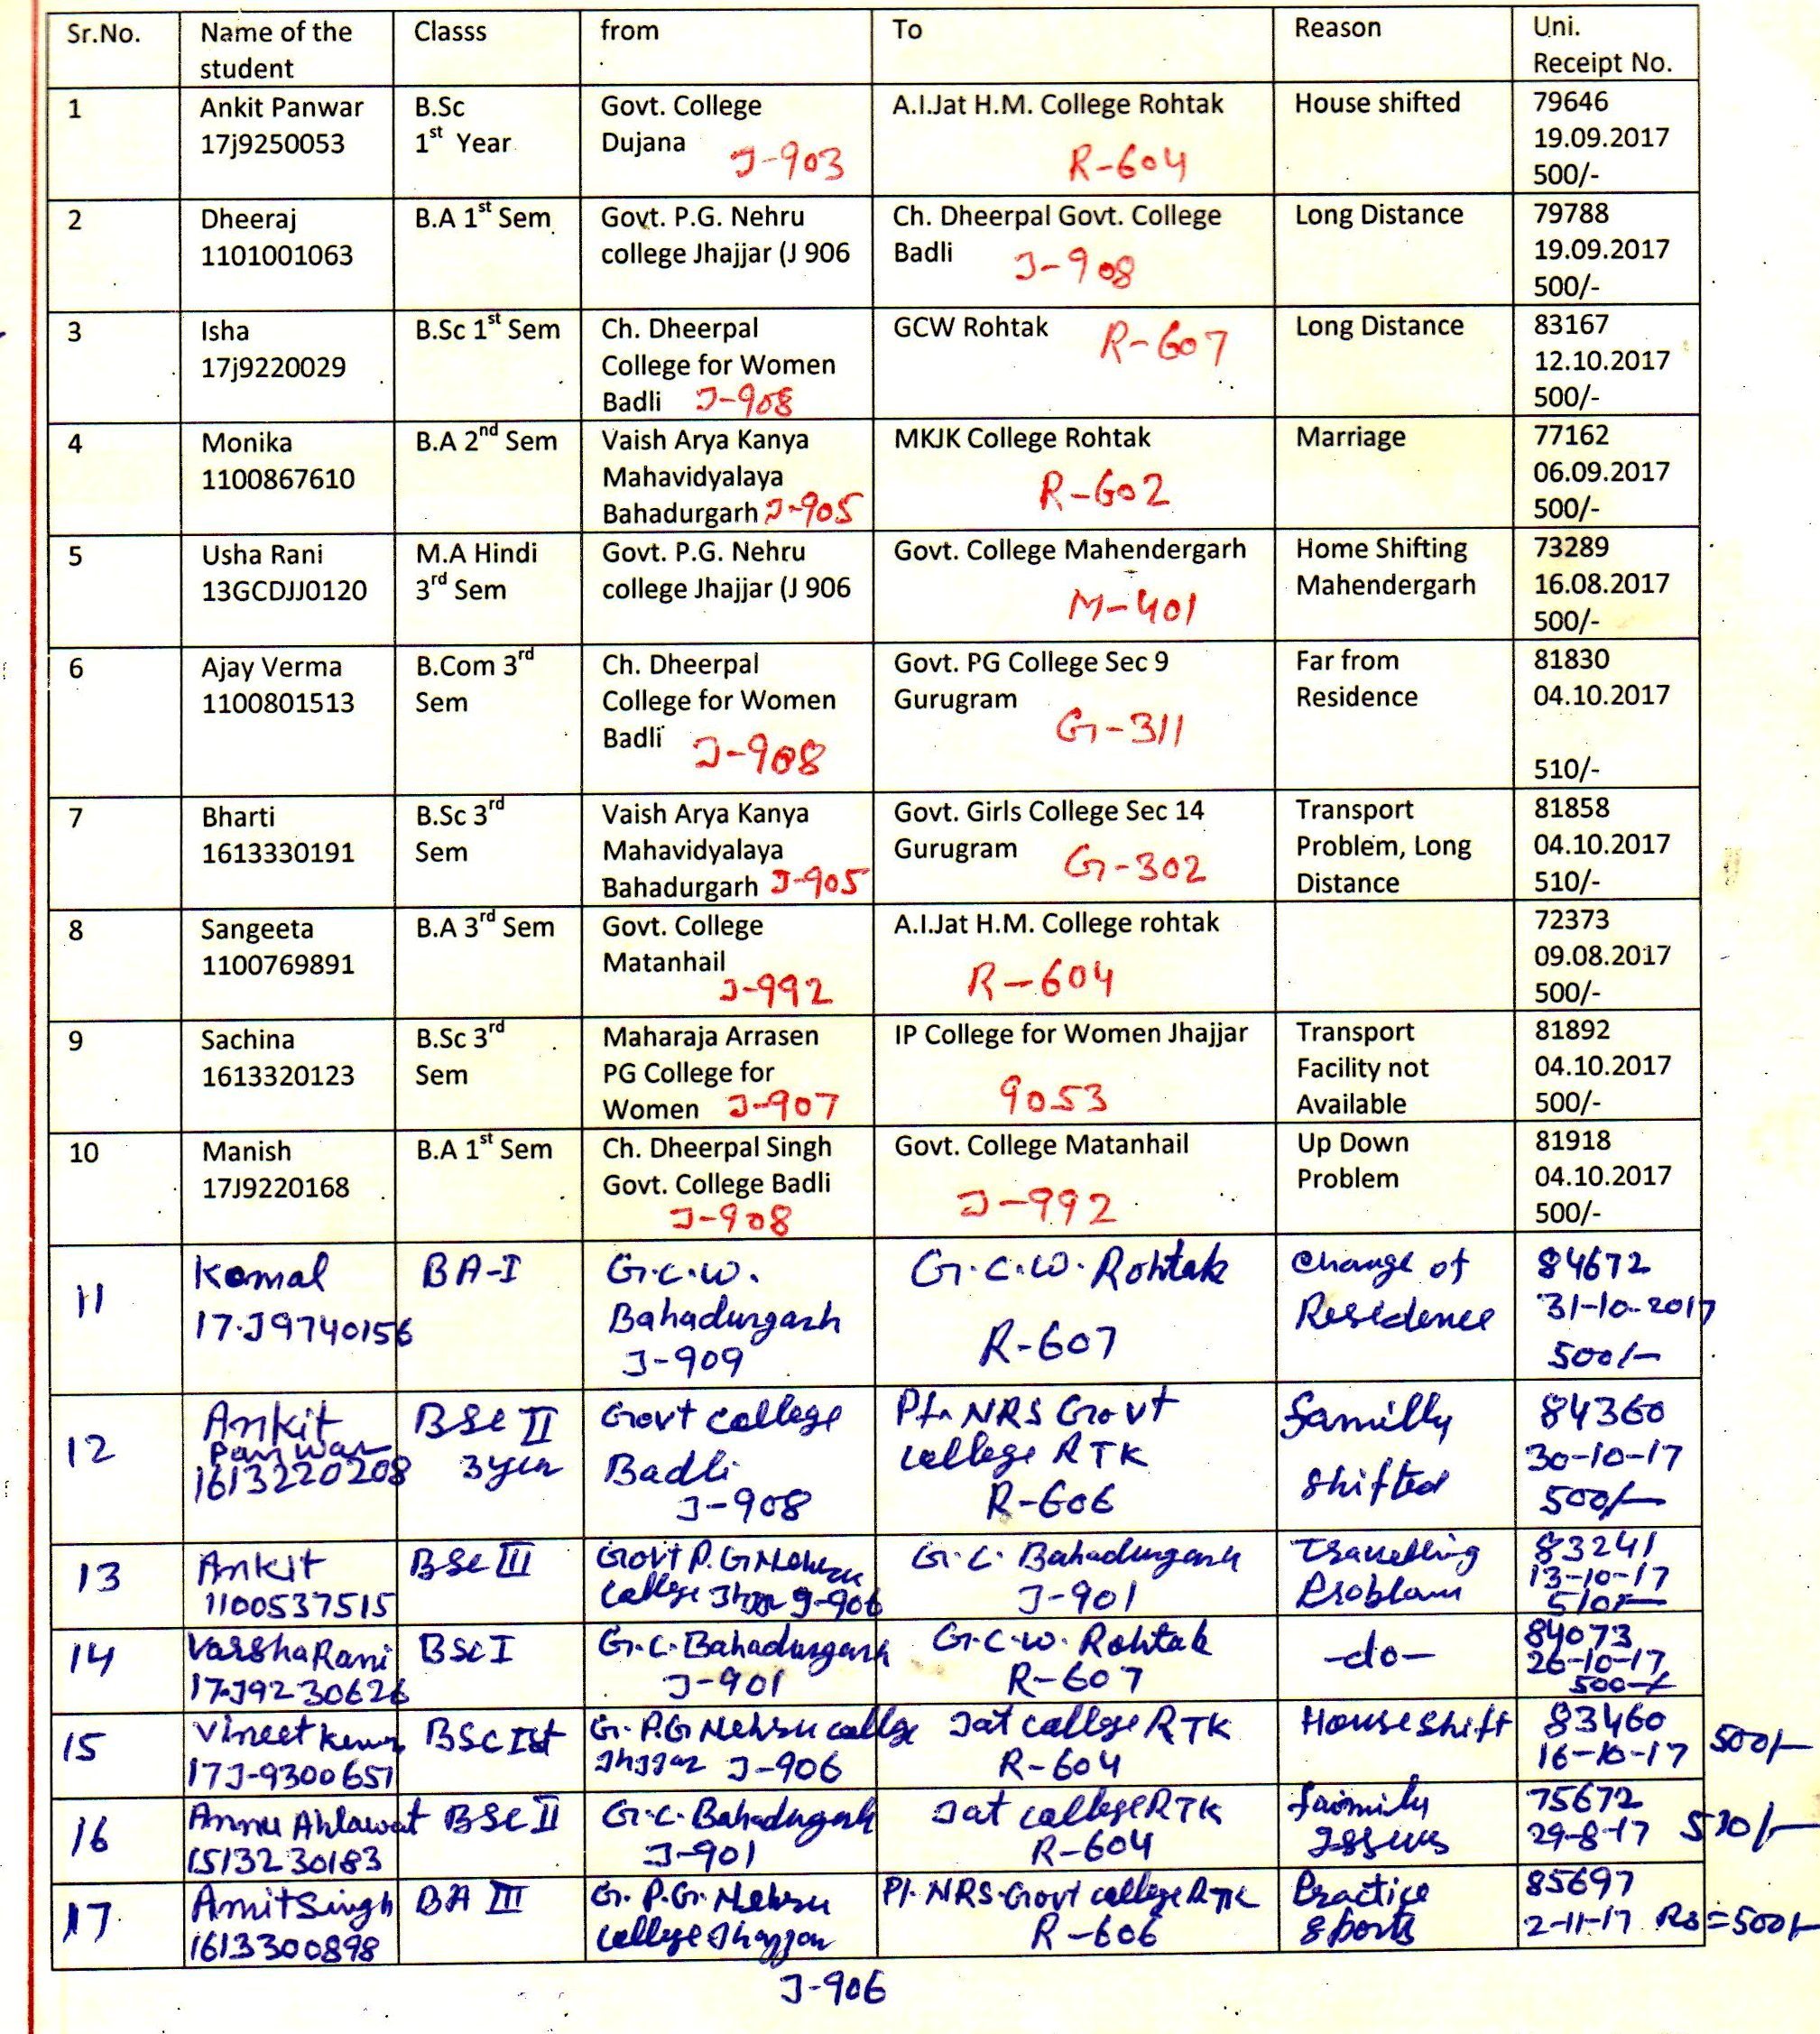 Sr.No. Name of the student Classs from To Reason Uni. Receipt No.
1 Ankit Panwar 17j9250053 B.Sc 1st Year Govt. College Dujana J-903 A.I.Jat H.M. College Rohtak R-604 House shifted 79646 19.09.2017 500/-
2 Dheeraj 1101001063 B.A 1st Sem Govt. P.G. Nehru college Jhajjar (J 906 Ch. Dheerpal Govt. College Badli J-908 Long Distance 79788 19.09.2017 500/-
3 Isha 17j9220029 B.Sc 1st Sem Ch. Dheerpal College for Women Badli J-908 GCW Rohtak R-607 Long Distance 83167 12.10.2017 500/-
4 Monika 1100867610 B.A 2nd Sem Vaish Arya Kanya Mahavidyalaya Bahadurgarh J-905 MKJK College Rohtak R-602 Marriage 77162 06.09.2017 500/-
5 Usha Rani 13GCDJJ0120 M.A Hindi 3rd Sem Govt. P.G. Nehru college Jhajjar (J 906 Govt. College Mahendergarh M-401 Home Shifting Mahendergarh 73289 16.08.2017 500/-
6 Ajay Verma 1100801513 B.Com 3rd Sem Ch. Dheerpal College for Women Badli J-908 Govt. PG College Sec 9 Gurugram G-311 Far from Residence 81830 04.10.2017 510/-
7 Bharti 1613330191 B.Sc 3rd Sem Vaish Arya Kanya Mahavidyalaya Bahadurgarh J-905 Govt. Girls College Sec 14 Gurugram G-302 Transport Problem, Long Distance 81858 04.10.2017 510/-
8 Sangeeta 1100769891 B.A 3rd Sem Govt. College Matanhail J-992 A.I.Jat H.M. College rohtak R-604 72373 09.08.2017 500/-
9 Sachina 1613320123 B.Sc 3rd Sem Maharaja Arrasen PG College for Women J-907 IP College for Women Jhajjar 9053 Transport Facility not Available 81892 04.10.2017 500/-
10 Manish 17J9220168 B.A 1st Sem Ch. Dheerpal Singh Govt. College Badli J-908 Govt. College Matanhail J-992 Up Down Problem 81918 04.10.2017 500/-
11 Komal 17.J9740156 BA-I G.C.W. Bahadurgarh J-909 G.C.W. Rohtak R-607 Change of Residence 84672 31-10-2017 500/-
12 Ankit Panwar 1613220208 BSc II Govt College Badli J-908 Pt. NRS Govt College RTK R-606 familly shifted 84360 30-10-17 500/-
13 Ankit 1100537515 BSc III Govt P.G Nehru College J-906 G.C. Bahadurgarh J-901 Travelling Problam 83241 13-10-17 510/-
14 Varsha Rani 17.J9230626 BSc I G.C. Bahadurgarh J-901 G.C.W. Rohtak R-607 -do- 84073 26-10-17 500-/
15 Vineet 17J-9300651 BSc Ist G. P.G Nehru college Jhajjar J-906 Jat college RTK R-604 House shift 83460 16-10-17 500/-
16 Annu Ahlawat 1513230183 BSc II G.C. Bahadurgarh J-901 Jat college RTK R-604 faimily Issues 75672 29-8-17 510/-
17 Amit Singh 1613300898 BA III G. P.G. Nehru College Jhajjar J-906 Pt. NRS Govt college RTK R-606 Practice sports 85697 2-11-17 Rs = 500/-